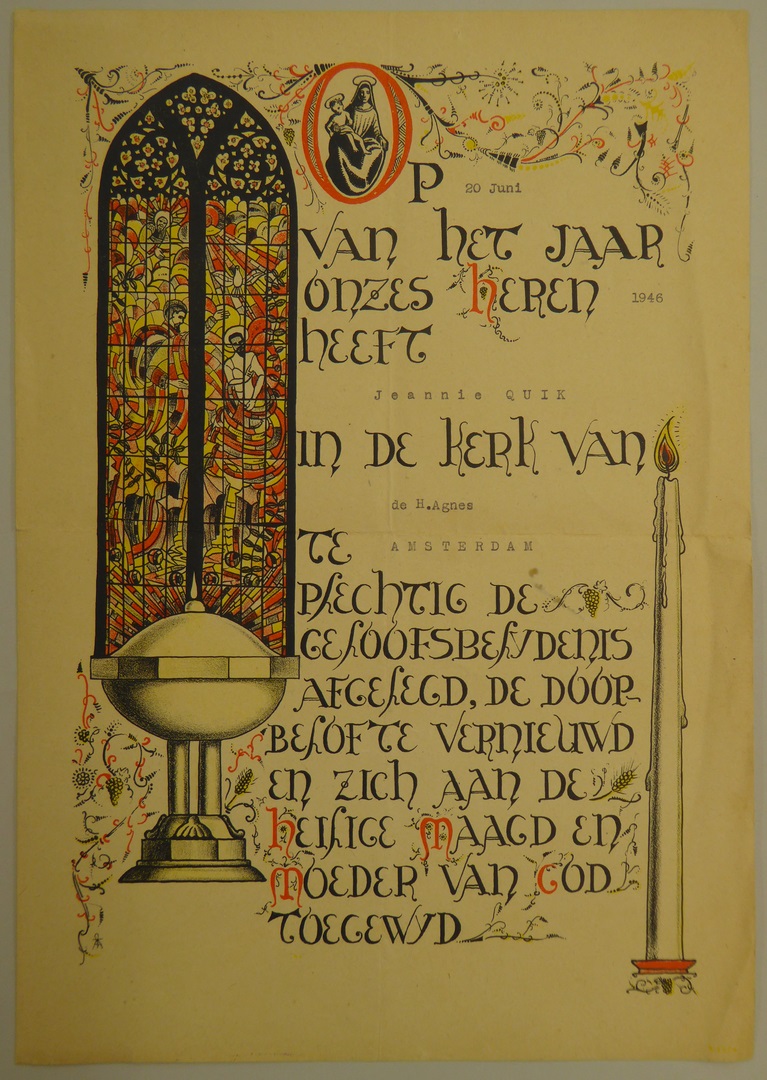 Op 20 Juni
van het jaar
onzes Heren 1946
heeft
Jeannie QUIK
in de kerk van
de H.Agnes
te AMSTERDAM
plechtig de
geloofsbelydenis
afgelegd, de doop-
belofte vernieuwd
en zich aan de
Heilige Maagd en
Moeder van God
toegewyd